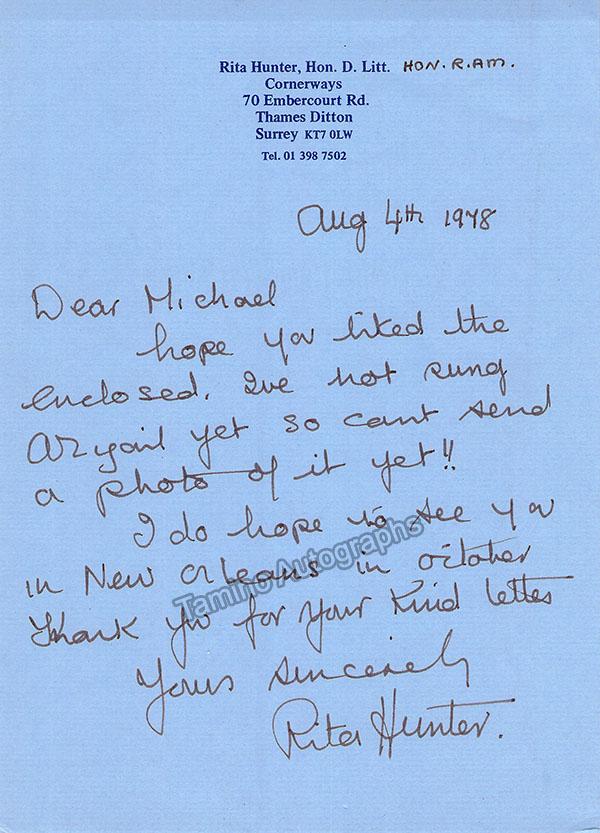 Rita Hunter, Hon. D. Litt. HON. R.A.M.
Cornerways
70 Embercourt Rd.
Thames Ditton
Surrey KT7 0LW
Tel. 01 398 7502
Aug 4th 1978
Dear Michael
hope you liked the
enclosed. Ive not sung
yet so cant send
a photo of it yet!!
I do hope to see you
in New Orleans in october
Thank you for your kind letter
Yours sincerely
Rita Hunter.
Tamino Autographs